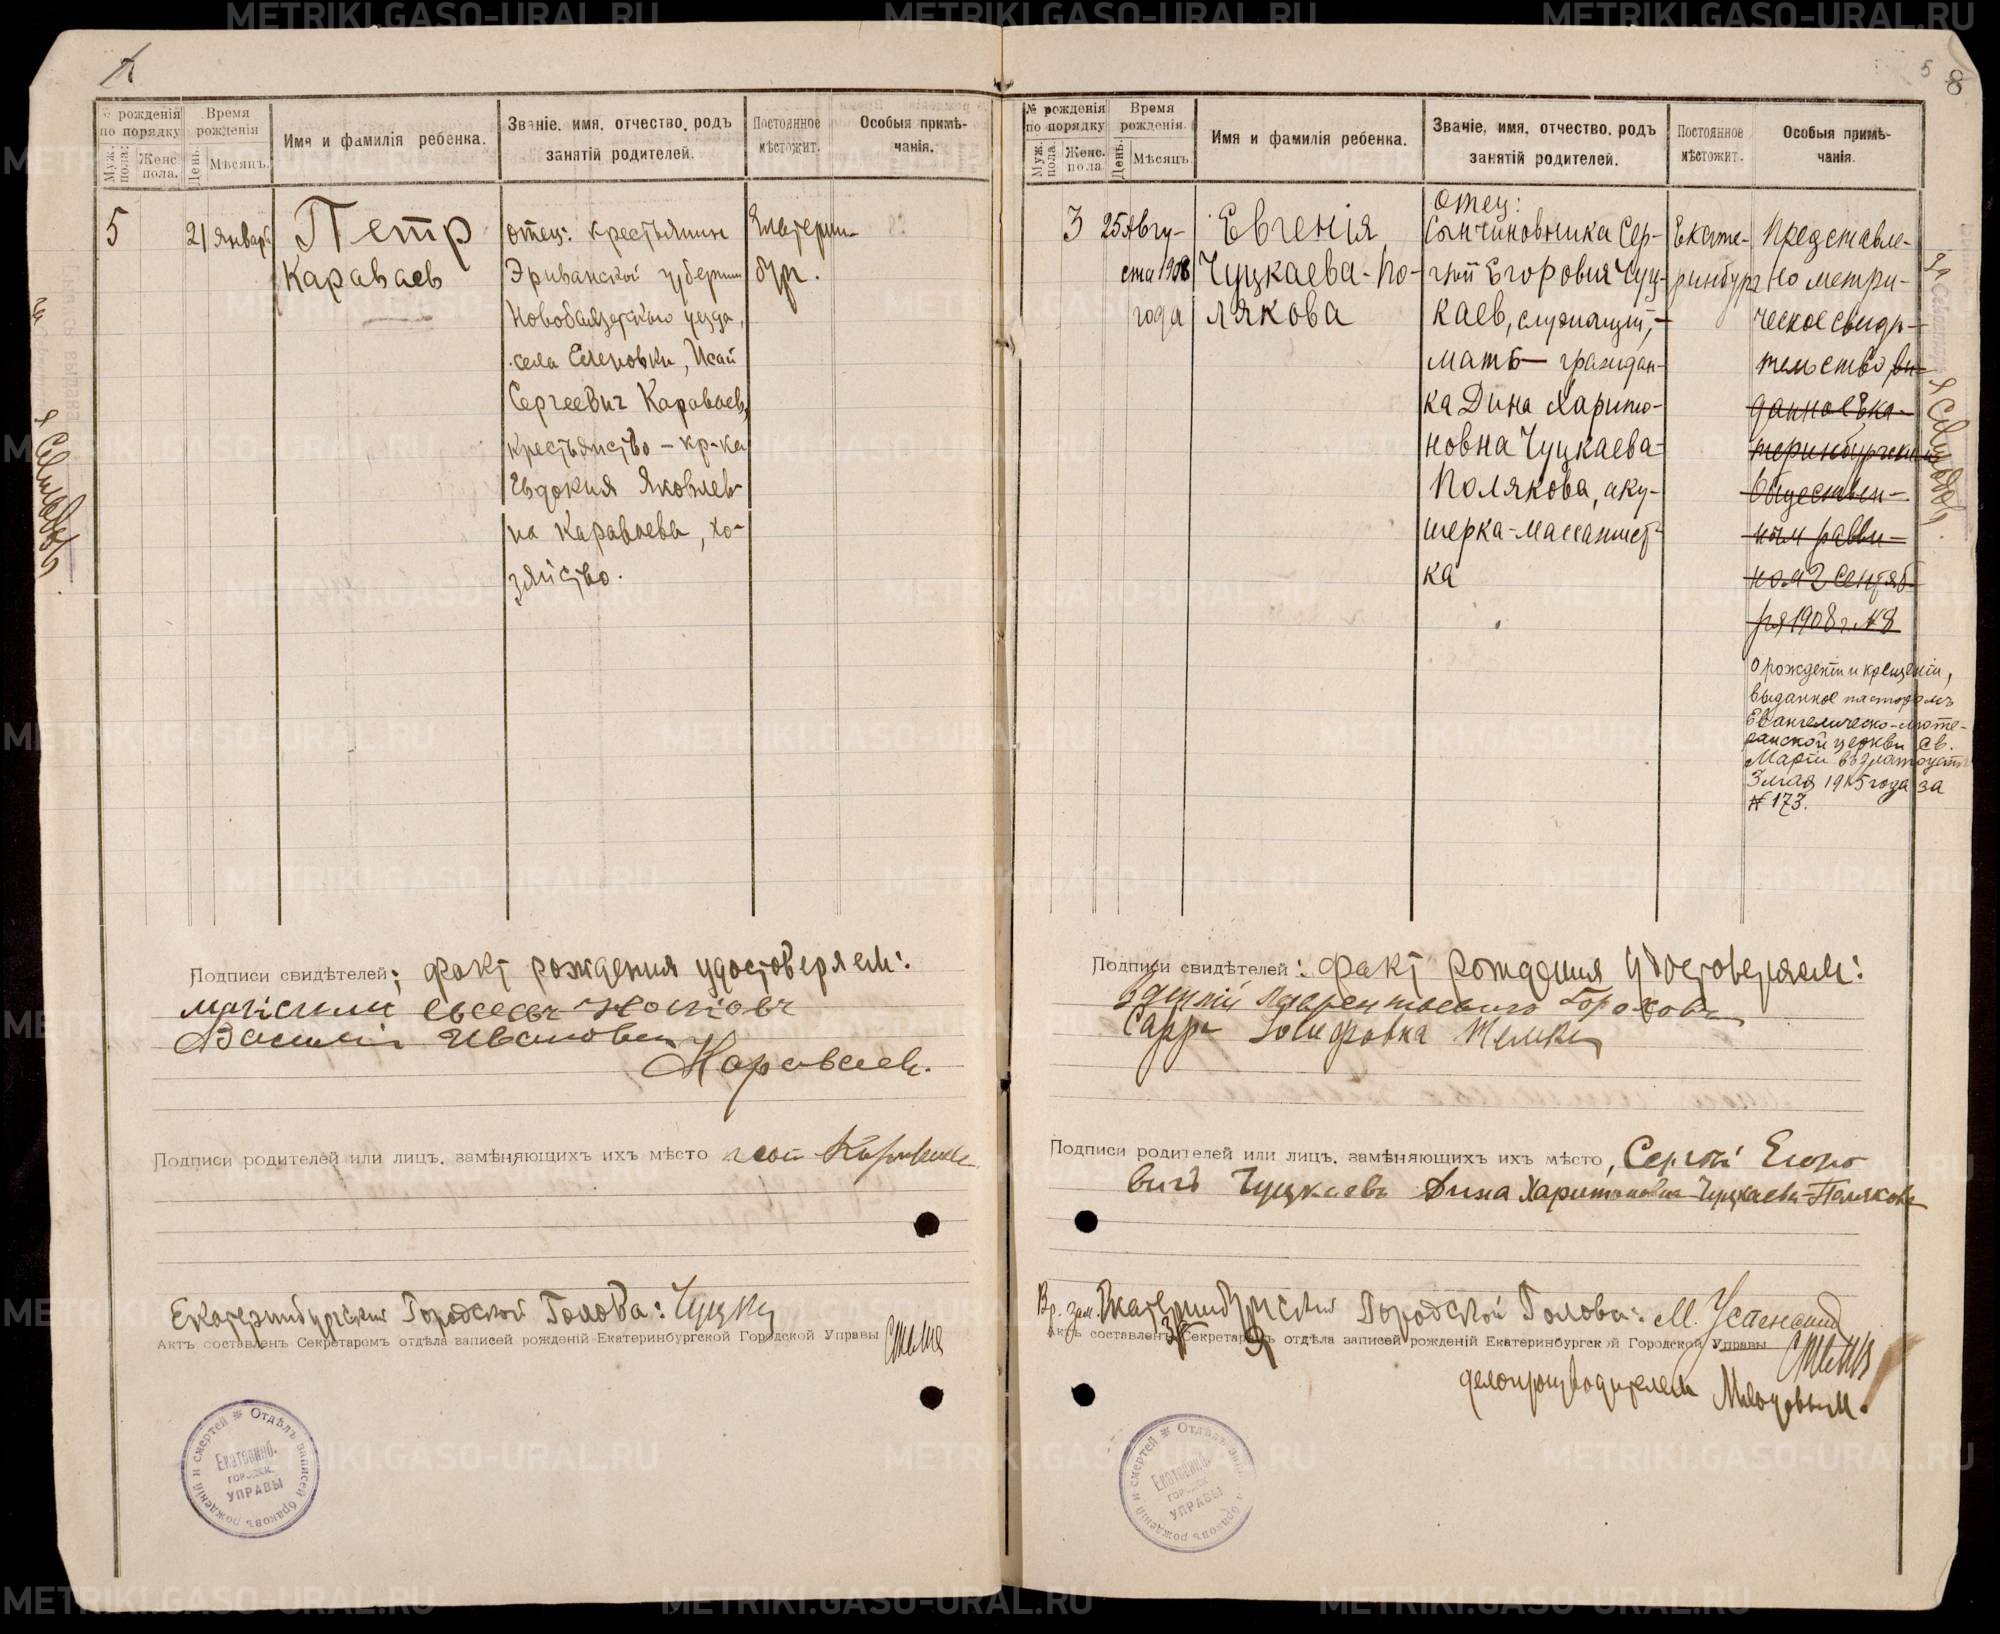 № рожденія по порядку
Муж. пола.
Женс. пола.
Время рожденія
День.
Мѣсяцъ.
Имя и фамилія ребенка.
Званіе, имя, отчество, родъ занятій родителей.
Постоянное мѣстожит.
Особыя примѣчанія.
5
21
январ
Петр
Караваев
отец: крестьянин
Эриванской губернии
Новобаязетского уезда,
села Еленовки, Исай
Сергеевич Караваев,
крестьянство – кр-ка
Евдокия Яковлев-
на Караваева, хо-
зяйство.
Екатерин-
бург.
Подписи свидѣтелей: факт рождения удостоверяем:
Василий Иванович
Караваев.
Подписи родителей или лицъ, замѣняющихъ ихъ мѣсто
Екатеринбургский Городской Голова:
Актъ составленъ Секретаромъ отдѣла записей рожденій Екатеринбургской Городской Управы
Отдѣлъ записей браковъ рожденій и смертей
Екатеринб.
городск.
УПРАВЫ
5 8
№ рожденія по порядку
Муж. пола.
Женс. пола
Время рожденія.
День.
Мѣсяцъ.
Имя и фамилія ребенка.
Званіе, имя, отчество, родъ занятій родителей.
Постоянное мѣстожит.
Особыя примѣчанія.
3
25 Авгу-
ста 1908
года
Евгенія
Чуцкаева-По-
лякова
отец:
Сын чиновника Сер-
гей Егорович Чуц-
каев, служащий, –
мать – граждан-
ка Дина Харито-
новна Чуцкаева-
Полякова, аку-
шерка-массажист-
ка
Екате-
ринбург
Представле-
но метри-
ческое свидѣ-
тельство вы-
данное Ека-
теринбургским
Обществен-
ным равви-
ном 2 Сентяб-
ря 1908 г. № 8
о рожденіи и крещеніи,
выданное пасторомъ
Евангелическо-люте-
ранской церкви Св.
Маріи въ Златоуст
3 мая 1915 года за
№ 173.
Подписи свидѣтелей: факт рождения удостоверяем:
Подписи родителей или лицъ, замѣняющихъ ихъ мѣсто, Сергѣй Егоро
вичъ Чуцкаевъ Дина Харитоновна Чуцкаева-Полякова
Вр. зам. Екатеринбургский Городской Голова: М. Успенский
Актъ составленъ Секретаромъ отдѣла записей рожденій Екатеринбургской Городской Управы
делопроизводителем
Отдѣлъ записей браковъ рожденій и смертей
Екатеринб.
городск.
УПРАВЫ
METRIKI.GASO-URAL.RU